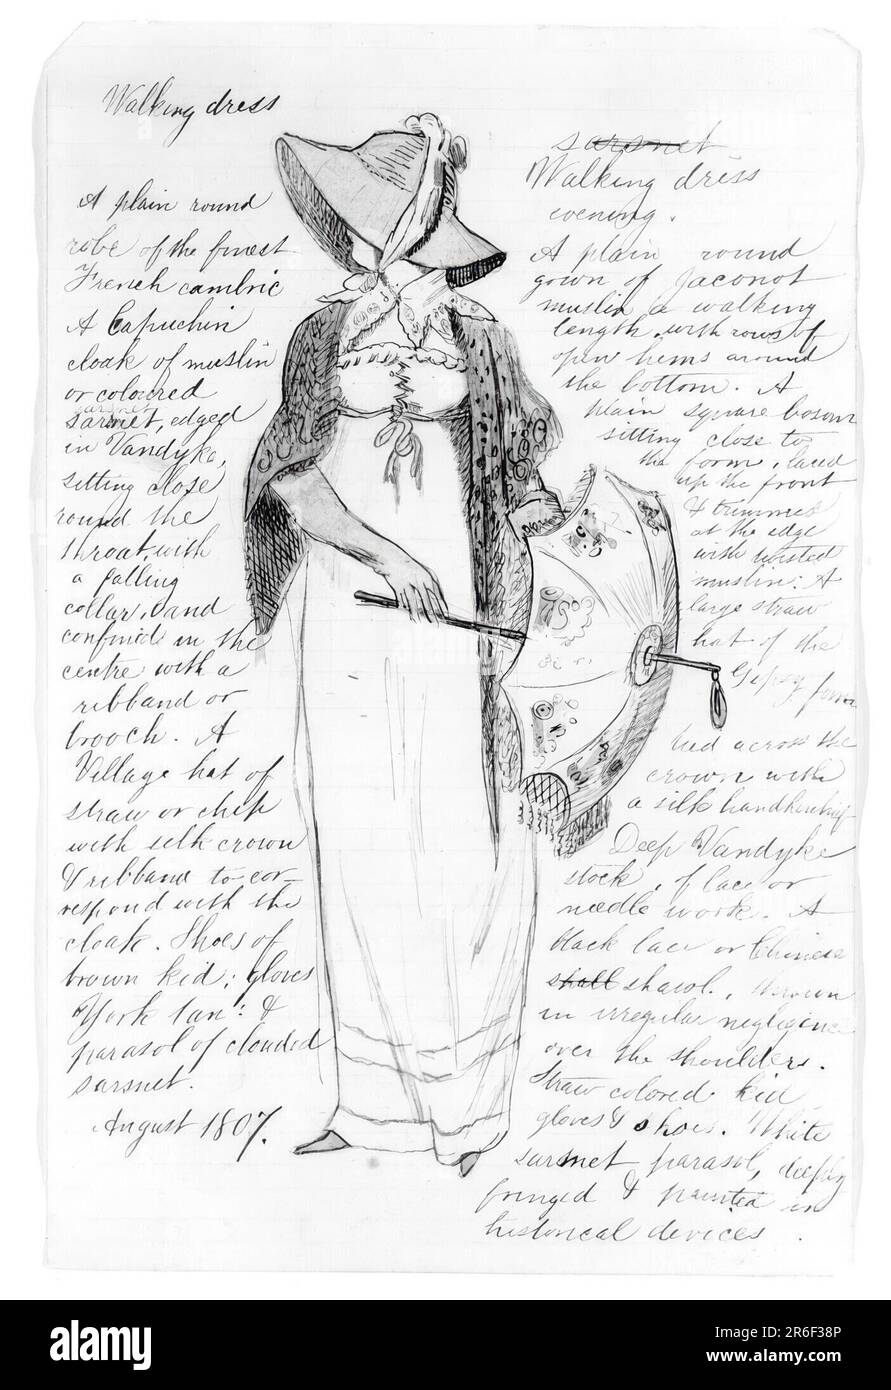 Walking dress
A plain round
robe of the finest
French cambric
A Capuchin
cloak of muslin
or coloured
sarsnet
sarsnet, edged
in Vandyke,
sitting close
round the
throat, with
a falling
collar, and
confined in the
centre with a
ribband or
brooch. A
Village hat of
straw or chip
with silk crown
& ribband to cor-
respond with the
cloak. Shoes of
brown kid; gloves
York tan: &
parasol of clouded
sarsnet.
August 1807.
sarsnet
Walking dress
evening.
A plain round
gown of Jaconot
muslin a walking
length, with rows of
open hems around
the bottom. A
plain square bosom
sitting close to
the form, laced
up the front
& trimmed
at the edge
with twisted
muslin: A
large straw
hat of the
Gipsy form
tied across the
crown with
a silk handkerchief
Deep Vandyke
stock, of lace or
needle work. A
black lace or Chinese
shall shawl, thrown
in irregular negligence
over the shoulders.
Straw colored kid
gloves & shoes. White
sarsnet parasol, deeply
fringed & painted in
historical devices.
alamy
alamy
Image ID: 2R6F38P
www.alamy.com